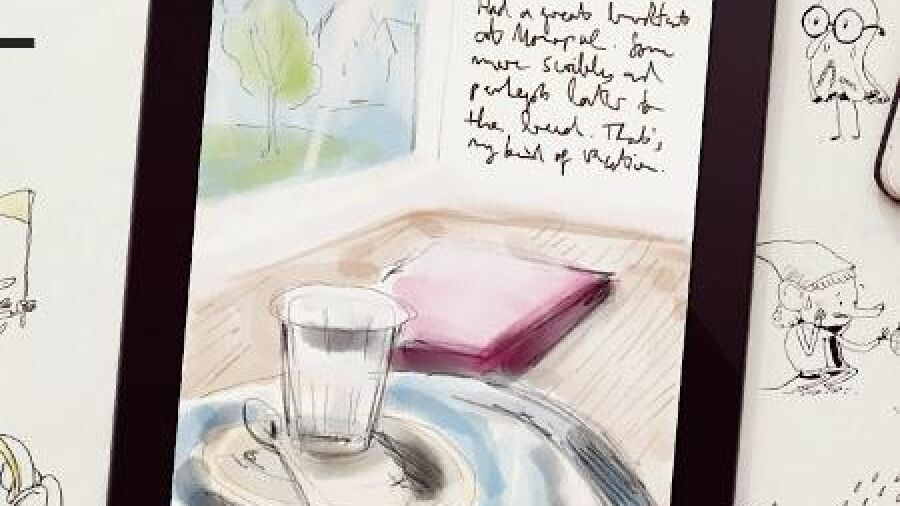 Had a great breakfast
at Monopol. Some
more scribbles and
perhaps later to
the, . That's,
my kind of vacation.